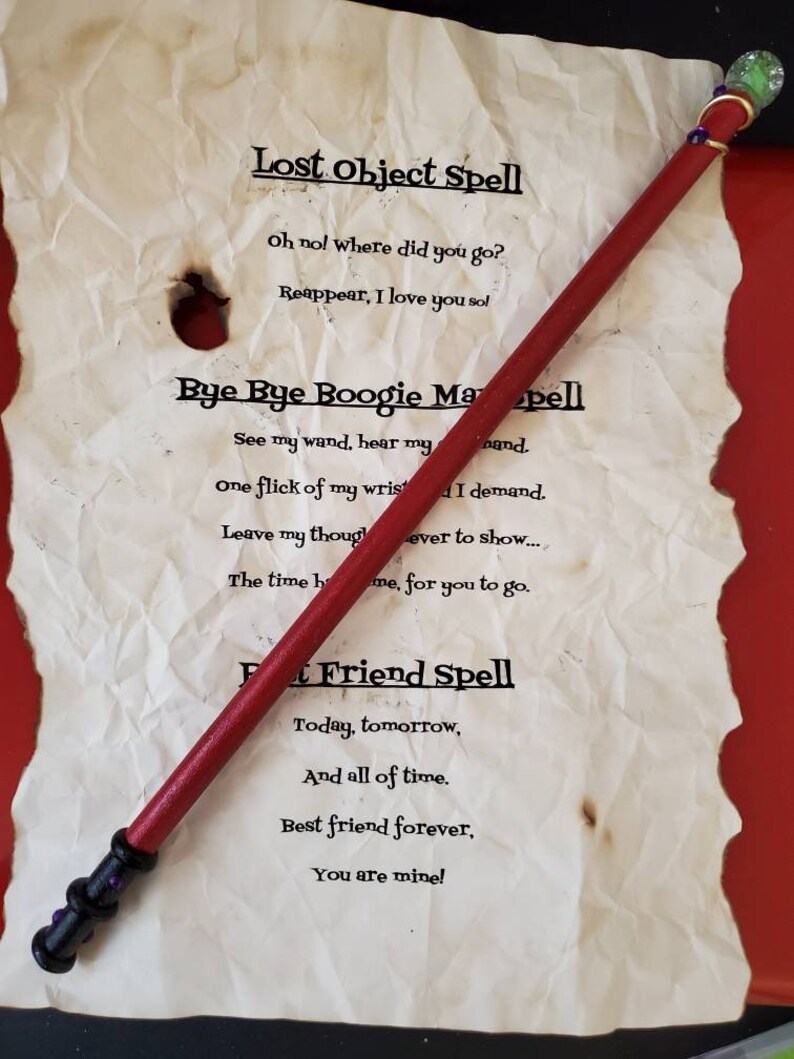 Lost Object Spell
Oh no! Where did you go?
Reappear, I love you so!
Bye Bye Boogie Ma Spell
See my wand, hear my
One flick of my wrist I demand.
Leave my ever to show...
The time me, for you to go.
Friend Spell
Today, tomorrow,
And all of time.
Best friend forever,
You are mine!